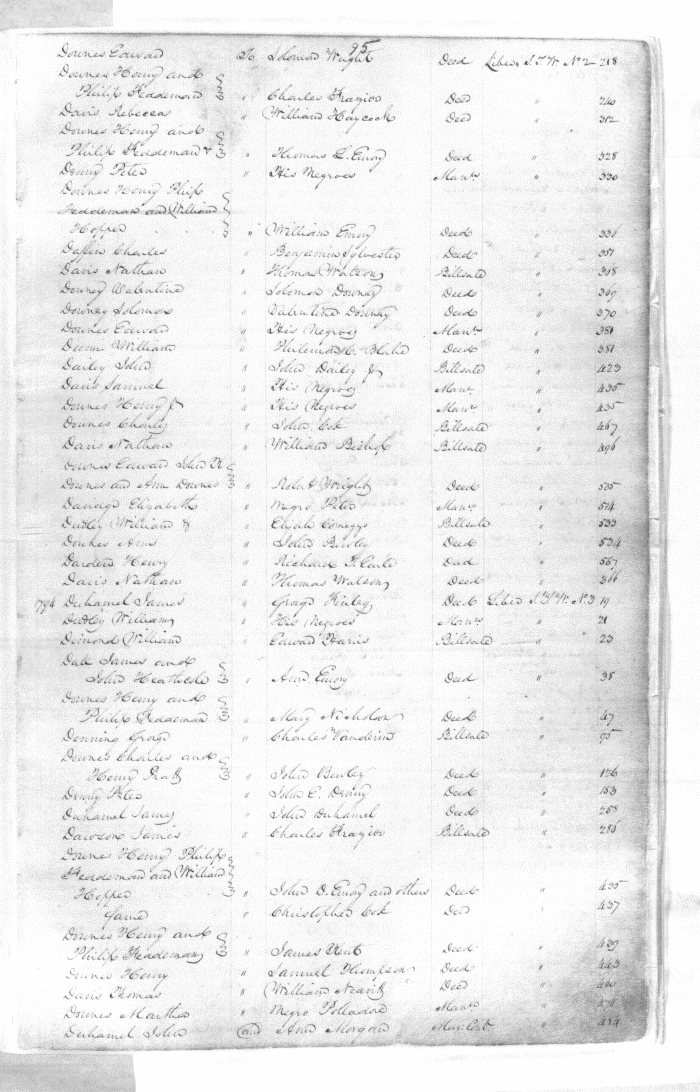 95
Downes Edward To Solomon Wright Deed Liber S.T.W. No 2 218
Downes Henry and
Philip Feddeman " Charles Frazier Deed " 240
Davis Rebecca " William Haycock Deed " 312
Downes Henry and
Philip Feddeman & " Thomas L. Emory Deed " 328
Denny Peter " His Negroes Manu. " 330
Downes Henry Philip
Feddeman and William
Hopper " William Emory Deed " 336
Daffin Charles " Benjamin Sylvester Deed " 351
Davis Nathan " Thomas Watson Billsale " 368
Downey Valentine " Solomon Downey Deed " 369
Downey Solomon " Valentine Downey Deed " 370
Downes Edward " His Negroes Manu. " 381
Dunn William " Philemon C. Blake Deed " 381
Dailey John " John Dailey Jr Billsale " 423
Davis Samuel " His Negroes Manu. " 435
Downes Henry Jr " His Negroes Manu. " 435
Downes Charles " John Cok Billsale " 467
Davis Nathan " William Bishop Billsale " 496
Downes Edward John H
Downes and Ann Downes " Robert Wright Deed " 505
Davidge Elizabeth " Negro Peter Manu. " 514
Dudley William & " Elijah Comegys Billsale " 533
Downes Ann " John Bewley Deed " 534
Darden Henry " Richard T. Earle Deed " 567
Davis Nathan " Thomas Watson Deed " 366
1794 Duhamel James " George Finley Deed Liber S.T.W. No. 3 19
Dudley William " His Negroes Manu. " 21
Dimond William " Edward Harris Billsale " 23
Dall James and
John Heathcote " Ann Emory Deed " 38
Downes Henry and
Philip Feddeman " Mary Nicholson Deed " 47
Denning George " Charles Vanderins Billsale " 95
Downes Charles and
Henry Pratt " John Bewley Deed " 126
Denny Peter " John E. Denny Deed " 153
Duhamel James " John Duhamel Deed " 258
Dawson James " Charles Frazier Billsale " 286
Downes Henry Philip
Feddeman and William
Hopper " John D. Emory and others Deed " 435
Same " Christopher Cok Deed " 437
Downes Henry and
Philip Feddeman " James Kent Deed " 439
Downes Henry " Samuel Thompson Deed " 443
Davis Thomas " William Deed " 460
Downes Martha " Negro Polladore Manu. "
Duhamel John and Ann Morgan Mar. Cert. " 484